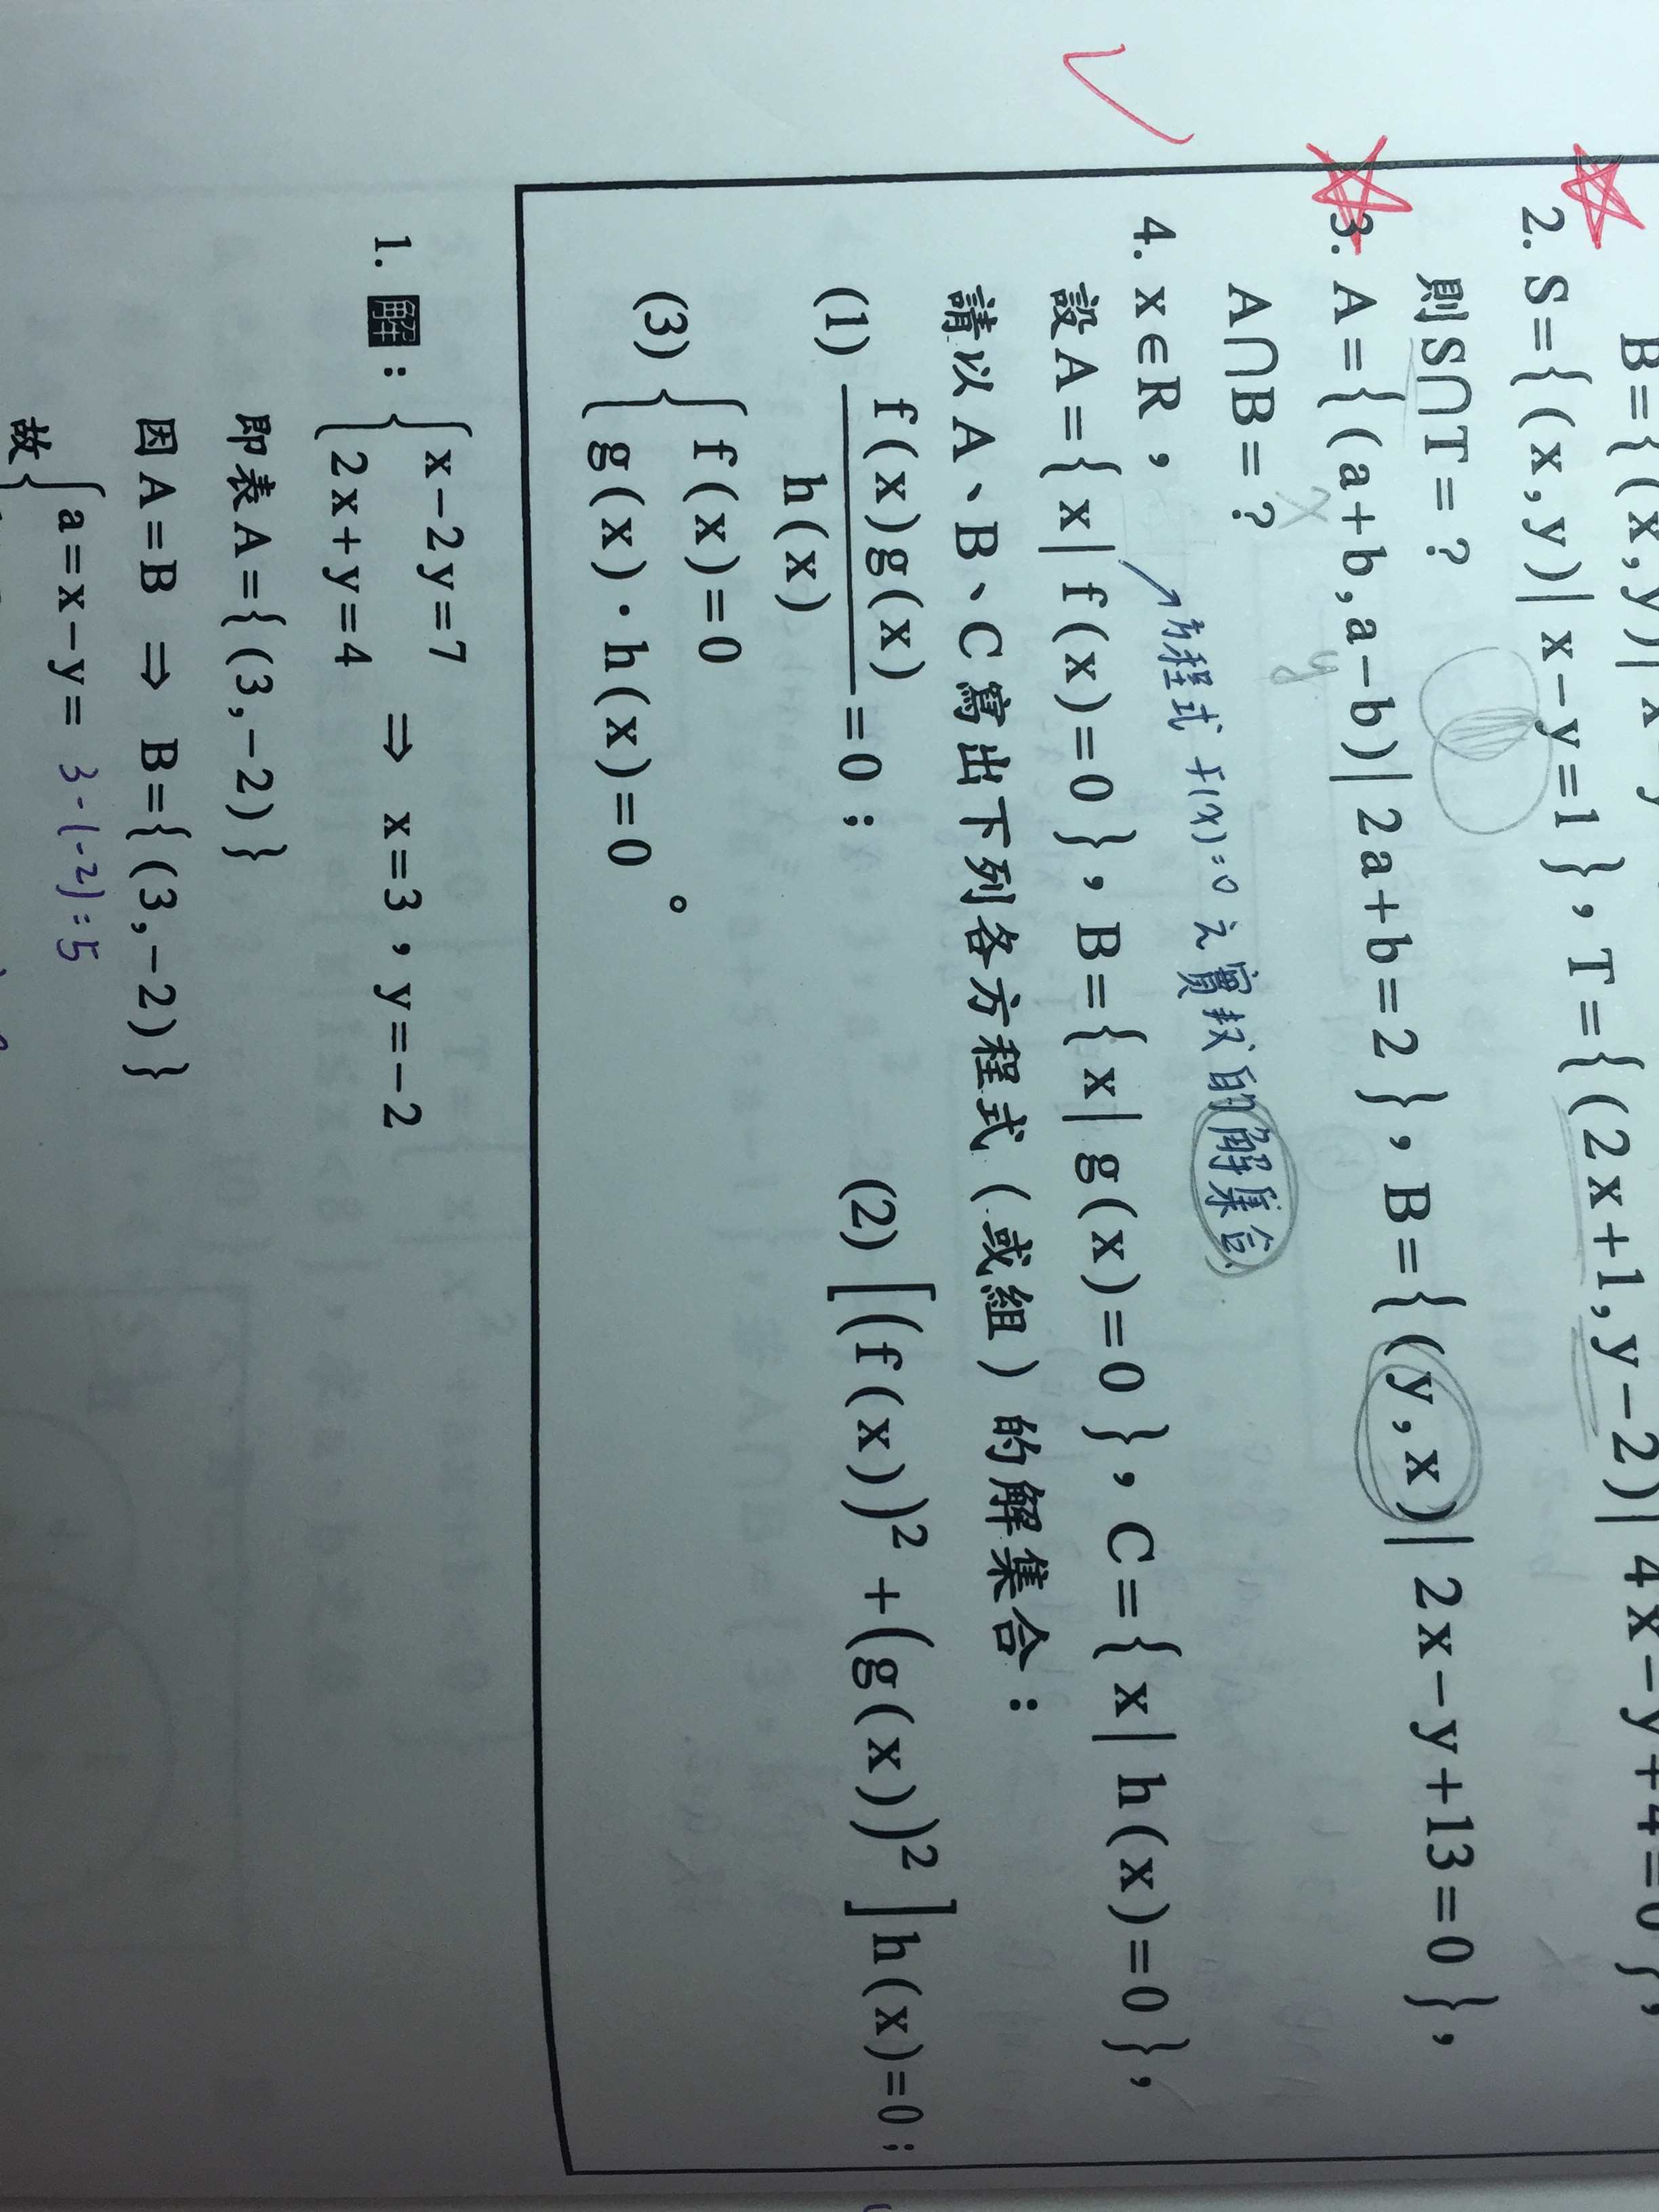 B={(x,y)|
4x-y+4=0},
2. S={(x,y)|x-y=1},T={(2x+1,y-2)|
則S∩T=?
3. A={(a+b,a-b)|2a+b=2},B={(y,x)|2x-y+13=0},
x y
A∩B=?
方程式 f(x)=0 之實找的解集合
4. x∈R,
設A={x|f(x)=0},B={x|g(x)=0},C={x|h(x)=0},
請以A、B、C寫出下列各方程式(或組)的解集合:
(1) f(x)g(x)/h(x)=0; (2) [(f(x))²+(g(x))²]h(x)=0;
(3) {f(x)=0
g(x)·h(x)=0 。
1. 解: {x-2y=7
2x+y=4 ⇒ x=3,y=-2
即表A={(3,-2)}
因A=B ⇒ B={(3,-2)}
故{a=x-y= 3-(-2)=5